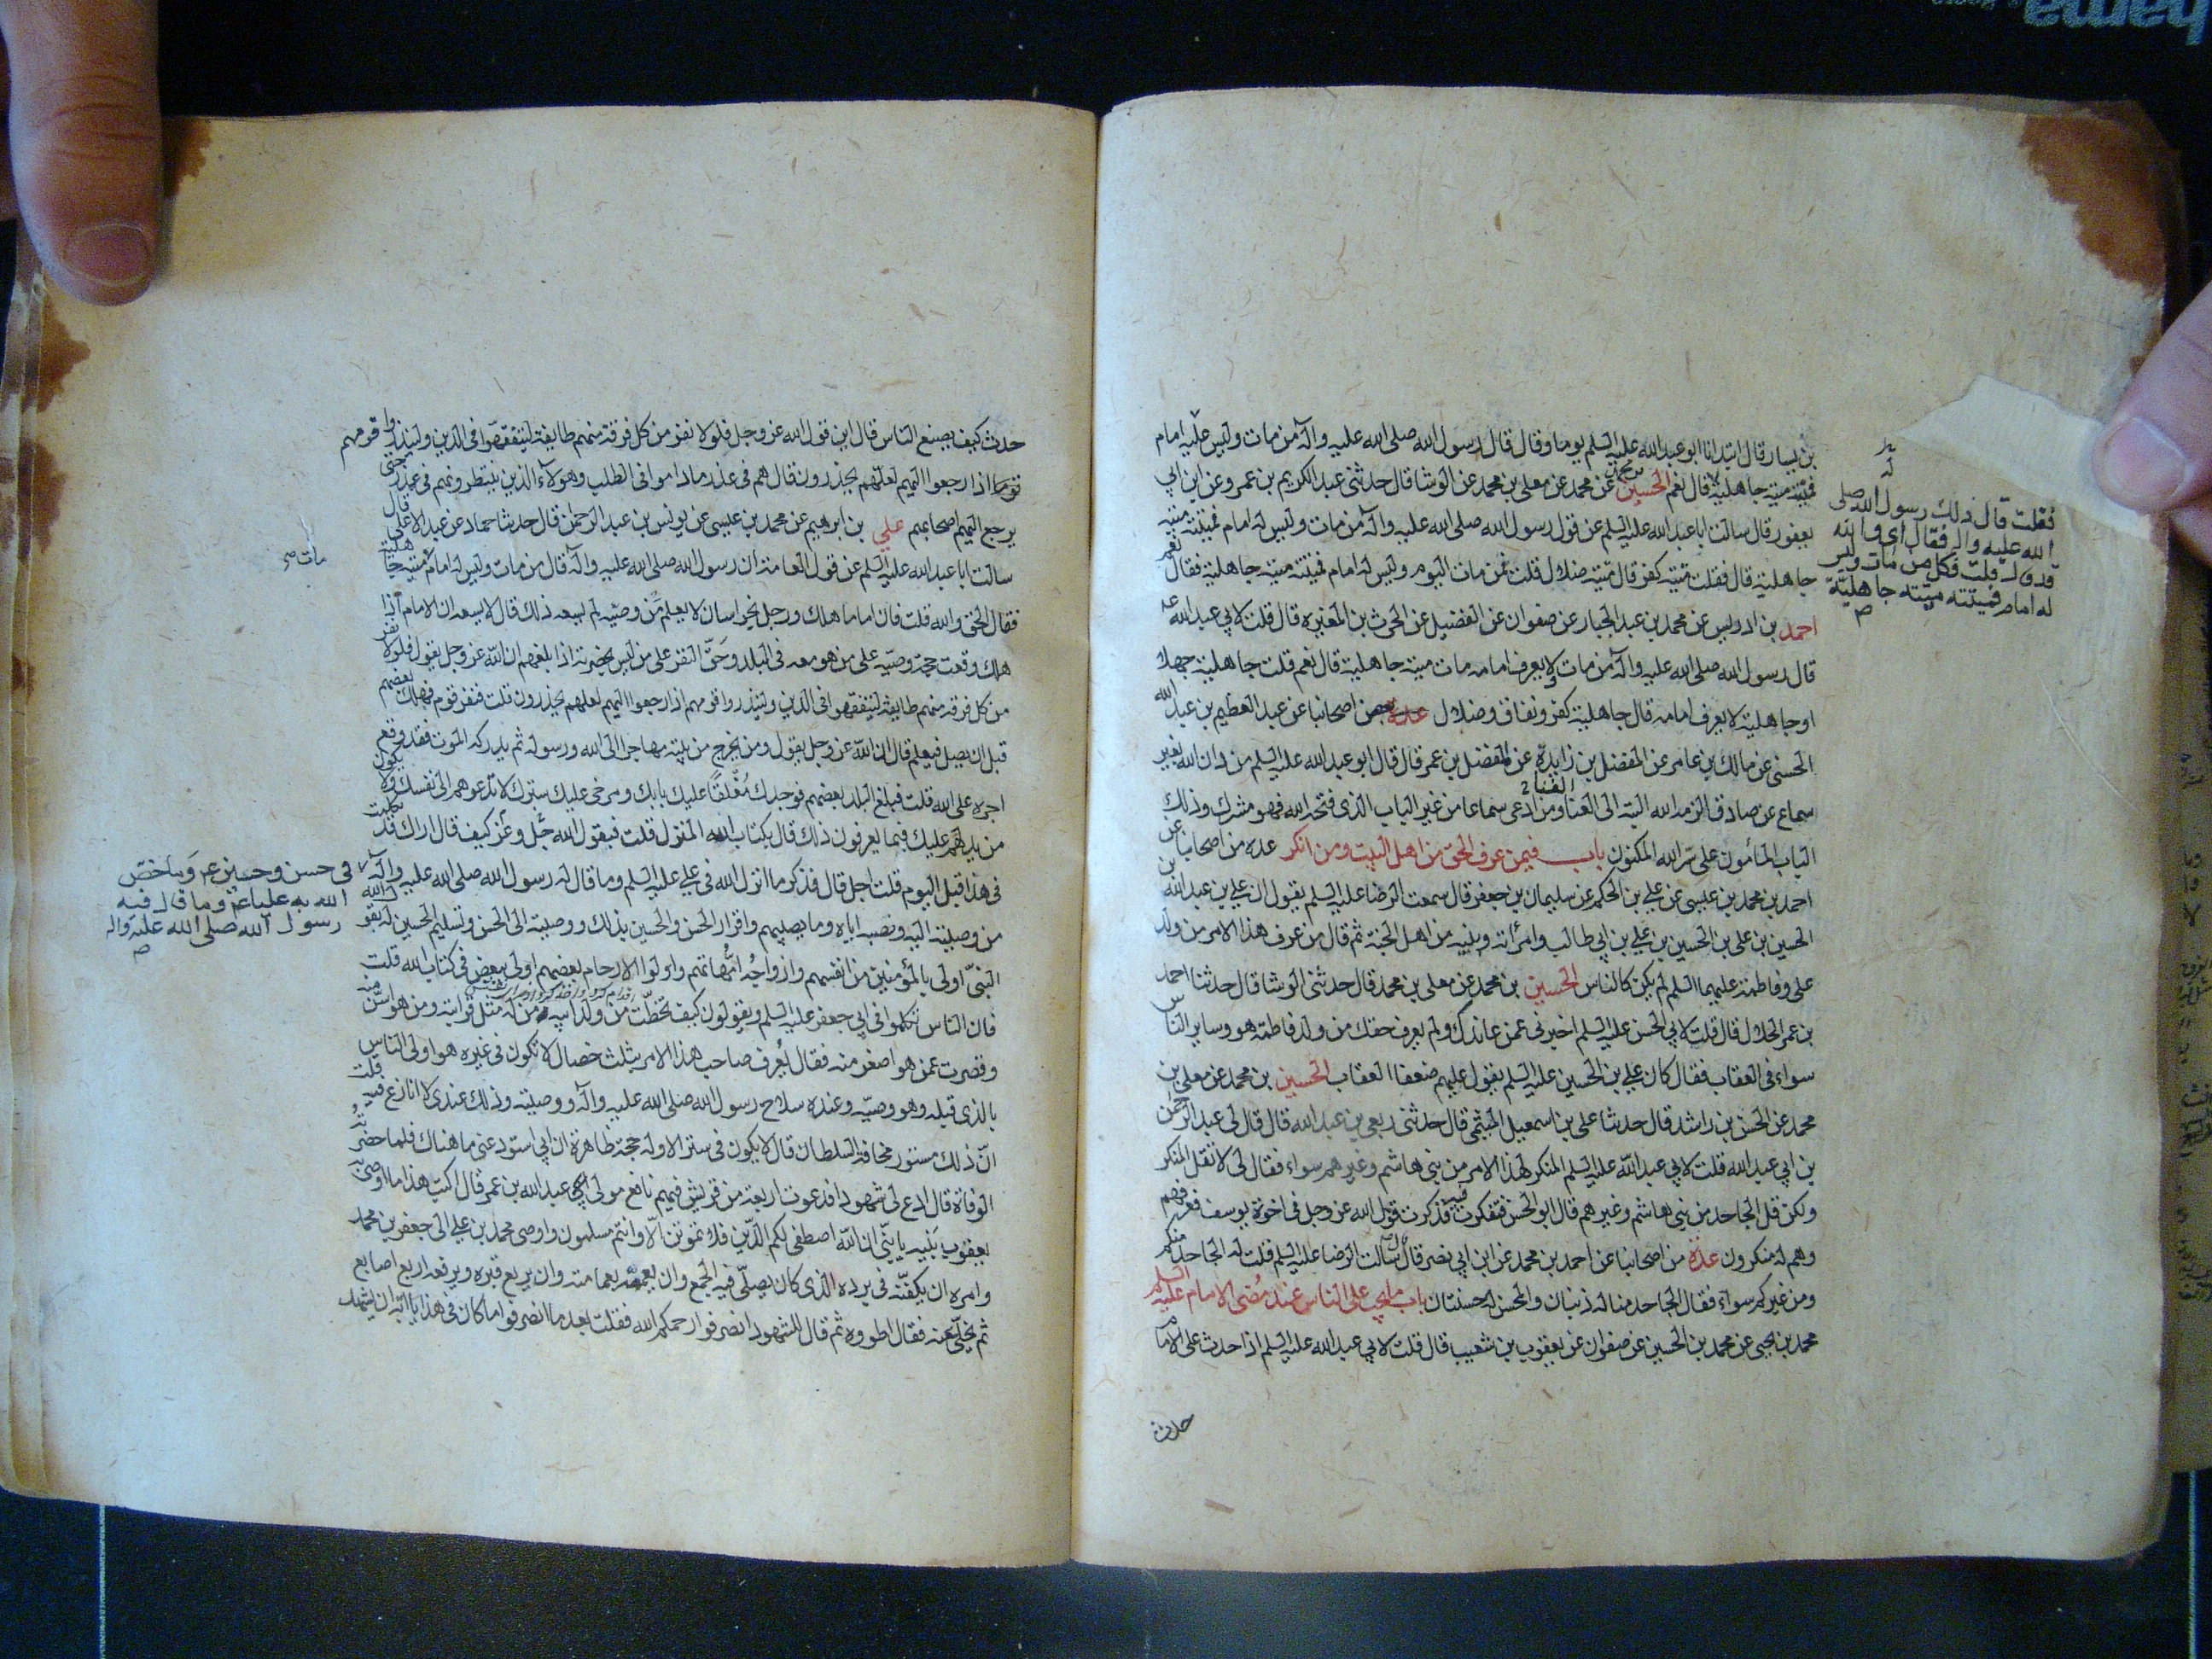 بن يسار قال ابتدانا ابو عبد الله عليه السلم يوما وقال قال رسول الله صلى الله عليه وآله من مات وليس عليه امام
فميتته ميتة جاهلية قال نعم الحسين بن محمد عن معلى بن محمد عن الوشا قال حدثنى عبد الكريم بن عمرو عن ابن ابي
يعفور قال سالت ابا عبد الله عليه السلم عن قول رسول الله صلى الله عليه وآله من مات وليس له امام فميتته ميتة
جاهلية قال فقلت ميتة كفر قال ميتة ضلال قلت فمن مات اليوم وليس له امام فميتته ميتة جاهلية فقال نعم
احمد بن ادريس عن محمد بن عبد الجبار عن صفوان عن الفضيل عن الحرث بن المغيره قال قلت لابي عبد الله عه
قال رسول الله صلى الله عليه وآله من مات ولا يعرف امامه مات ميتة جاهلية قال نعم قلت جاهلية جهلا
او جاهلية لا يعرف امامه قال جاهلية كفر ونفاق وضلال بعض اصحابنا عن عبد العظيم بن عبد الله
الحسنى عن مالك بن عامر عن المفضل بن زايدة عن المفضل بن عمر قال قال ابو عبد الله عليه السلم من دان الله بغير
سماع عن صادق الزمه الله البتة الى العنا ومن ادعى سماعا من غير الباب الذى فتحه الله فهو مشرك وذلك
الباب المأمون على سر الله المكنون باب فيمن عرف الحق من اهل البيت ومن انكر عدة من اصحابنا عن
احمد بن محمد بن عيسى عن علي بن الحكم عن سليمان بن جعفر قال سمعت الرضا عليه السلم يقول ان علي بن عبد الله بن
الحسين بن على بن الحسين بن علي بن ابي طالب وامرأته وبنيه من اهل الجنة ثم قال من عرف هذا الامر من ولد
على وفاطمة عليهما السلم لم يكن كالناس الحسين بن محمد عن معلى بن محمد قال حدثنى الوشا قال حدثنا احمد
بن عمر الحلال قال قلت لابي الحسن عليه السلم اخبرنى عمن عاندك ولم يعرف حقك من ولد فاطمة هو وساير الناس
سواء فى العقاب فقال كان علي بن الحسين عليه السلم يقول عليهم ضعفا العقاب الحسين بن محمد عن معلى بن
محمد عن الحسن بن راشد قال حدثنا على بن اسمعيل الميثمى قال حدثنى ربعي بن عبد الله قال قال لى عبد الرحمن
بن ابي عبد الله قلت لابي عبد الله عليه السلم المنكر لهذا الامر من بني هاشم وغيرهم سواء فقال لى لا تقل المنكر
ولكن قل الجاحد من بني هاشم وغيرهم قال ابو الحسن فتفكرت فيه فذكرت قول الله عز وجل فى اخوة يوسف فعرفهم
وهم له منكرون عدة من اصحابنا عن احمد بن محمد عن ابن ابي نصر قال سالت الرضا عليه السلم قلت له الجاحد منكم
ومن غيركم سواء فقال الجاحد منا له ذنبان والمحسن له حسنتان باب ما يجب على الناس عند مضى الامام عليه السلم
محمد بن يحيى عن محمد بن الحسين عن صفوان عن يعقوب بن شعيب قال قلت لابي عبد الله عليه السلم اذا حدث على الامام
حدث
فقلت قال ذلك رسول الله صلى
الله عليه واله فقال اى والله
قد قال قلت فكل من مات وليس
له امام فميتته ميتته جاهليّة
حدث كيف يصنع الناس قال اين قول الله عز وجل فلولا نفر من كل فرقة منهم طايفة ليتفقهوا فى الدين ولينذروا قومهم
اذا رجعوا اليهم لعلهم يحذرون قال هم فى عذر ما داموا فى الطلب وهولآء الذين ينتظرونهم فى عذر حتى
يرجع اليهم اصحابهم علي بن ابرهيم عن محمد بن عيسى عن يونس بن عبد الرحمن قال حدثنا حماد عن عبد الاعلى قال
سالت ابا عبد الله عليه السلم عن قول العامة ان رسول الله صلى الله عليه وآله قال من مات وليس له امام ميتة جاهلية
فقال الحق والله قلت فان اماما هلك ورجل بخراسان لا يعلم من وصيه لم يسعه ذلك قال لا يسعه ان الامام اذا
هلك وقعت حجة وصيه على من هو معه فى البلد وحق النفر على من ليس بحضرته اذا بلغهم ان الله عز وجل يقول فلولا نفر
من كل فرقة منهم طايفة ليتفقهوا فى الدين ولينذروا قومهم اذا رجعوا اليهم لعلهم يحذرون قلت فنفر قوم فهلك بعضهم
قبل ان يصل فيعلم قال ان الله عز وجل يقول ومن يخرج من بيته مهاجرا الى الله ورسوله ثم يدركه الموت فقد وقع
اجره على الله قلت فبلغ البلد بعضهم فوجدك مغلقا عليك بابك ومرخى عليك سترك لا تدعوهم الى نفسك ولا يكون
من يدلهم عليك فبما يعرفون ذلك قال بكتاب الله المنزل قلت فيقول الله جل وعز كيف قال اراك قد تكلمت
فى هذا قبل اليوم قلت اجل قال فذكر ما انزل الله فى علي عليه السلم وما قال له رسول الله صلى الله عليه وآله
من وصيته اليه ونصبه اياه وما يصيبهم واقرار الحسن والحسين بذلك ووصيته الى الحسن وتسليم الحسين له بقول الله
النبيّ اولى بالمؤمنين من انفسهم وازواجه امهاتهم واولوا الارحام بعضهم اولى ببعض فى كتاب الله قلت
فان الناس تكلموا فى ابي جعفر عليه السلم ويقولون كيف تخطت من ولد ابيه من له مثل قرابته ومن هو اسن منه
وقصرت عمن هو اصغر منه فقال يُعرف صاحب هذا الامر بثلث خصال لا تكون فى غيره هو اولى الناس
بالذى قبله وهو وصيه وعنده سلاح رسول الله صلى الله عليه وآله ووصيته وذلك عندى لا انازع فيه قلت
انّ ذلك مستور مخافة السلطان قال لا يكون فى ستر الا وله حجة ظاهرة ان ابي استودعنى ما هناك فلما حضرته
الوفاة قال ادع لى شهودا فدعوت اربعة من قريش فيهم نافع مولى عبد الله بن عمر قال اكتب هذا ما اوصى به
يعقوب بنيه يا بني ان الله اصطفى لكم الدين فلا تموتن الّا وانتم مسلمون واوصى محمد بن علي الى جعفر بن محمد
وامره ان يكفنه فى برده الذى كان يصلّى فيه الجمع وان يعممه بعمامته وان يربع قبره ويرفعه اربع اصابع
ثم يخلّى عنه فقال اطووه ثم قال للشهود انصرفوا رحمكم الله فقلت بعد ما انصرفوا ما كان فى هذا يا ابة ان يشهد
مات صح
فى حسن وحسين عه وما خص
الله به عليا عه وما قال فيه
رسول الله صلى الله عليه واله
hama